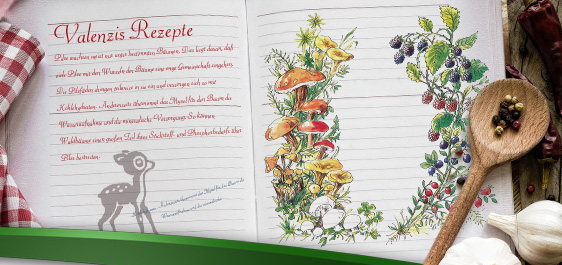 Valenzis Rezepte
Pilze wachsen meist nur unter bestimmten Bäumen. Dies liegt daran, daß
viele Pilze mit den Wurzeln der Bäume eine enge Gemeinschaft eingehen.
Die Pilzfäden dringen teilweise in sie ein und versorgen sich so mit
Kohlehydraten. Andererseits übernimmt das Myzel für den Baum die
Wasseraufnahme und die mineralische Versorgung. So können
Waldbäume einen großen Teil ihres Stickstoff- und Phosphorbedarfs über
Pilze bestreiten.